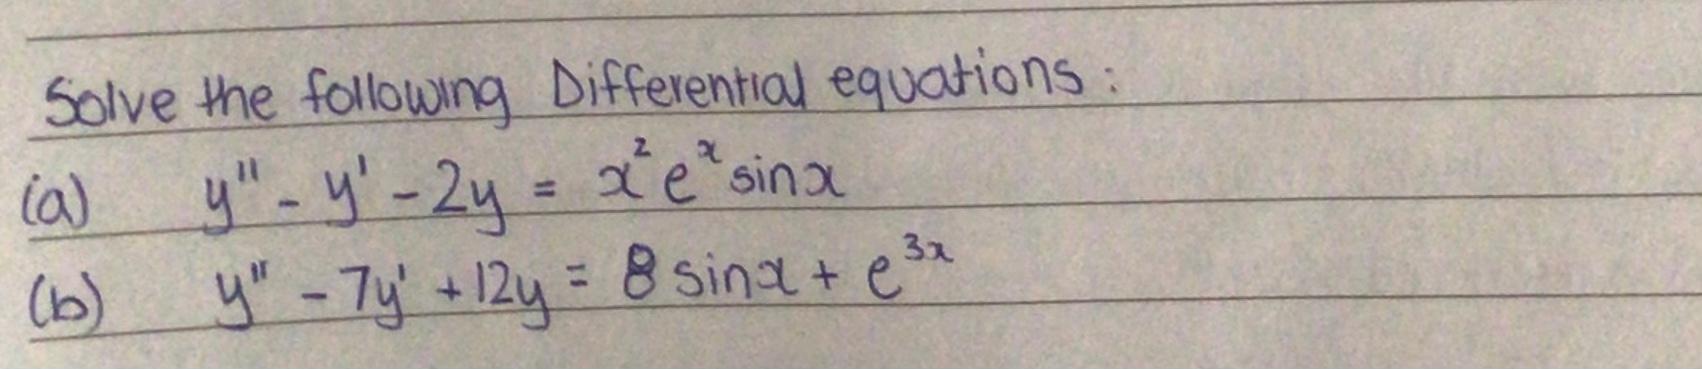 Solve the following Differential equations:
(a) y'' - y' - 2y = x² eˣ sinx
(b) y'' - 7y' + 12y = 8 sinx + e³ˣ